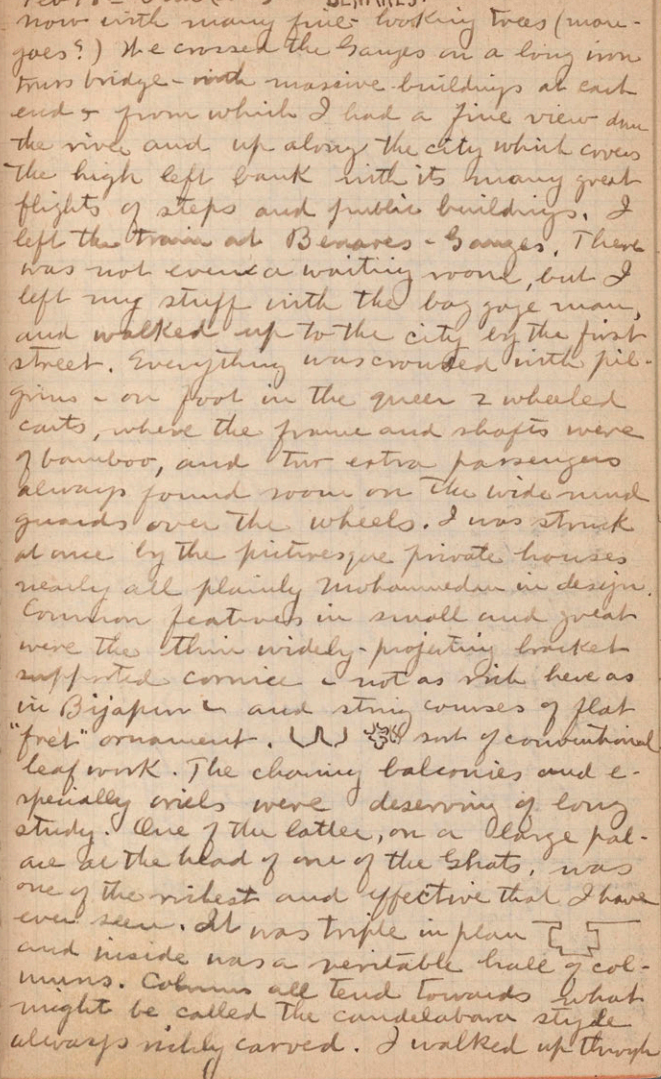 BENARES.
now with many fine looking trees (man-
goes?) We crossed the Ganges on a long iron
truss bridge - with massive buildings at each
end & from which I had a fine view down
the river and up along the city which covers
the high left bank with its many great
flights of steps and public buildings. I
left the train at Benares - Ganges. There
was not even a waiting room, but I
left my stuff with the baggage man,
and walked up to the city by the first
street. Everything was crowded with pil-
grims - on foot in the queer 2 wheeled
carts, where the frame and shafts were
of bamboo, and two extra passengers
always found room on the wide mud
guards over the wheels. I was struck
at once by the picturesque private houses
nearly all plainly Mohammedan in design.
Common features in small and great
were the thin widely-projecting bracket
supported cornice - not as rich here as
in Bijapur - and string courses of flat
"fret" ornament. sort of conventional
leaf work. The charming balconies and e-
specially oriels were deserving of long
study. One of the latter, on a large pal-
ace at the head of one of the Ghats, was
one of the richest and effective that I have
ever seen. It was triple in plan
and inside was a veritable hall of col-
umns. Columns all tend towards what
might be called the candelabara style
always richly carved. I walked up through